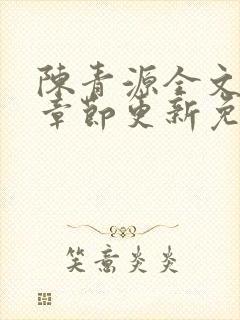 陳青源全文
章節更新免
笑意炎炎